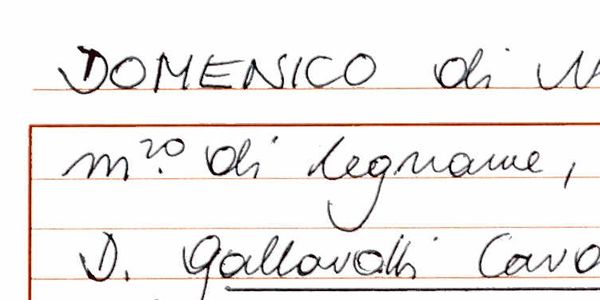 DOMENICO di
m.ro di legname,
D. Gallavalli